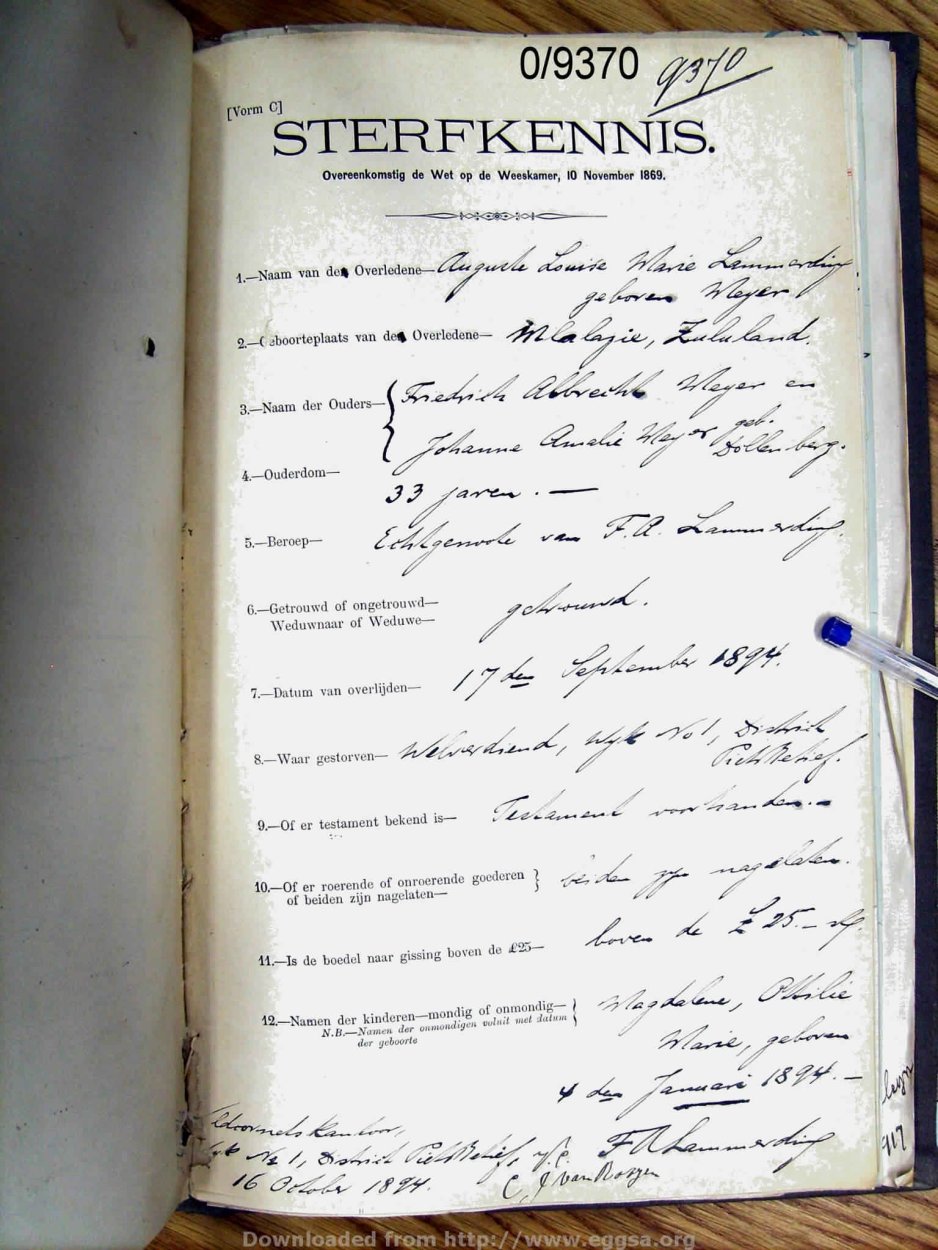 0/9370 9370
[Vorm C]
STERFKENNIS.
Overeenkomstig de Wet op de Weeskamer, 10 November 1869.
1.—Naam van den Overledene— Auguste Louise Marie Lammerding
geboren Meyer
2.—Geboorteplaats van den Overledene— Mlalazie, Zululand.
3.—Naam der Ouders— Friedrich Albrecht Meyer en
Johanne Amalie Meyer geb.
Dollenberg.
4.—Ouderdom—
33 jaren. —
5.—Beroep— Echtgenoote van F. A. Lammerding.
6.—Getrouwd of ongetrouwd—
Weduwnaar of Weduwe— getrouwd.
7.—Datum van overlijden— 17 den September 1894.
8.—Waar gestorven— Welverdiend, Wyk No 1, District
Piet Retief.
9.—Of er testament bekend is— Testament voorhanden. —
10.—Of er roerende of onroerende goederen } beiden zyn nagelaten.
of beiden zijn nagelaten—
11.—Is de boedel naar gissing boven de £25— boven de £ 25.—
12.—Namen der kinderen—mondig of onmondig— } Magdalene, Ottilie
N.B.—Namen der onmondigen voluit met datum
der geboorte
Marie, geboren
4 den Januari 1894. —
Veldcornets Kantoor,
Wyk No 1, District Piet Retief, F A Lammerding
16 October 1894. C. J. van Rooyen
917
Downloaded from http://www.eggsa.org